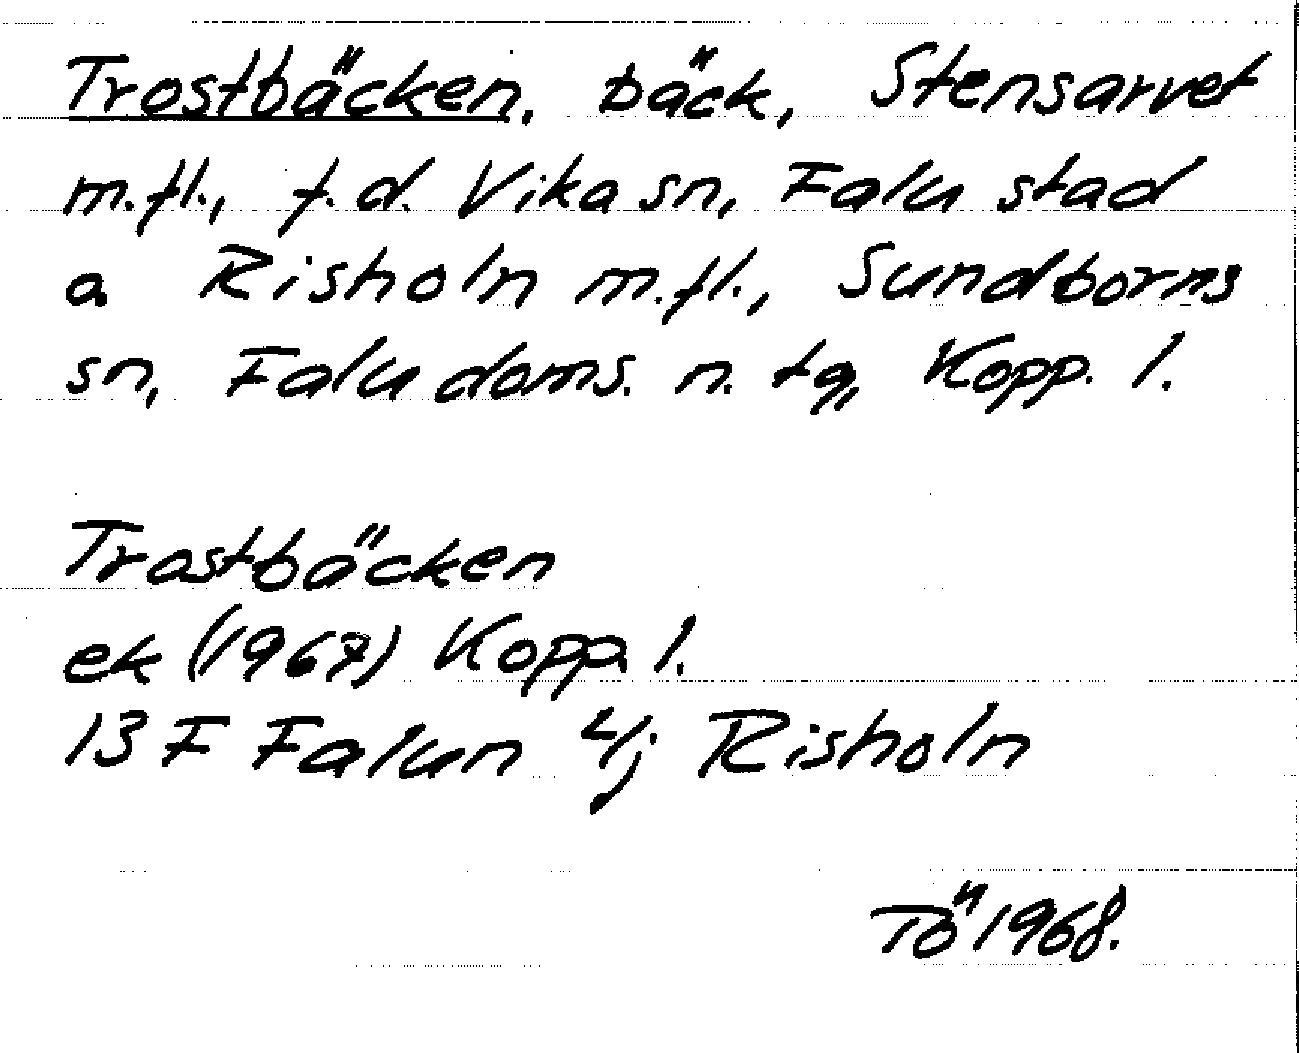 Trostbäcken, bäck, Stensarvet
m.fl., f.d. Vika sn, Falu stad
o Risholn m.fl., Sundborns
sn, Falu doms. n. tg, Kopp. l.
Trostbäcken
ek (1967) Kopp. l.
13 F Falun 4j Risholn
Tö 1968.